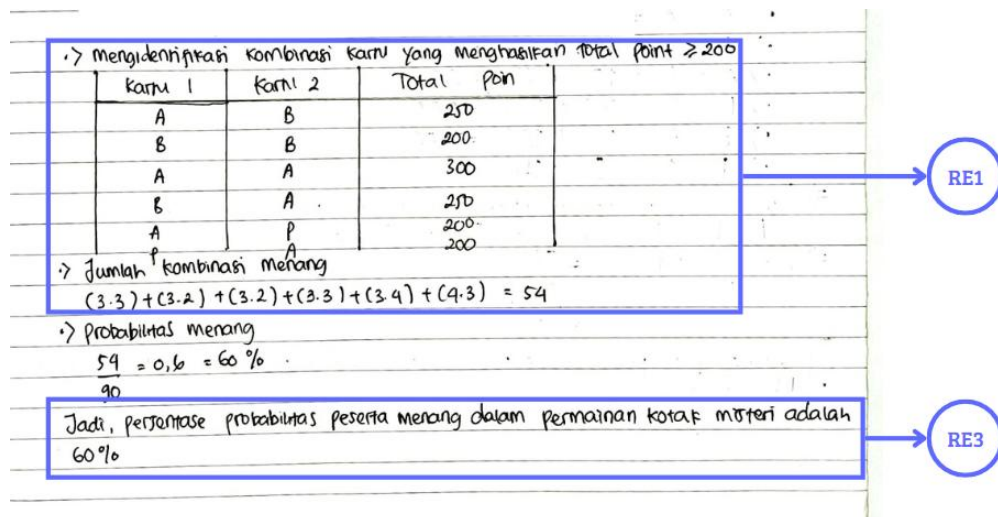 •> mengidentifikasi kombinasi kartu yang menghasilkan total point ≥ 200
Kartu 1 Kartu 2 Total Poin
A B 250
B B 200
A A 300
B A 250
A P 200
P A 200
•> Jumlah kombinasi menang
(3.3) + (3.2) + (3.2) + (3.3) + (3.4) + (4.3) = 54
•> probabilitas menang
54/90 = 0,6 = 60 %
Jadi, persentase probabilitas peserta menang dalam permainan kotak misteri adalah
60%
RE1
RE3